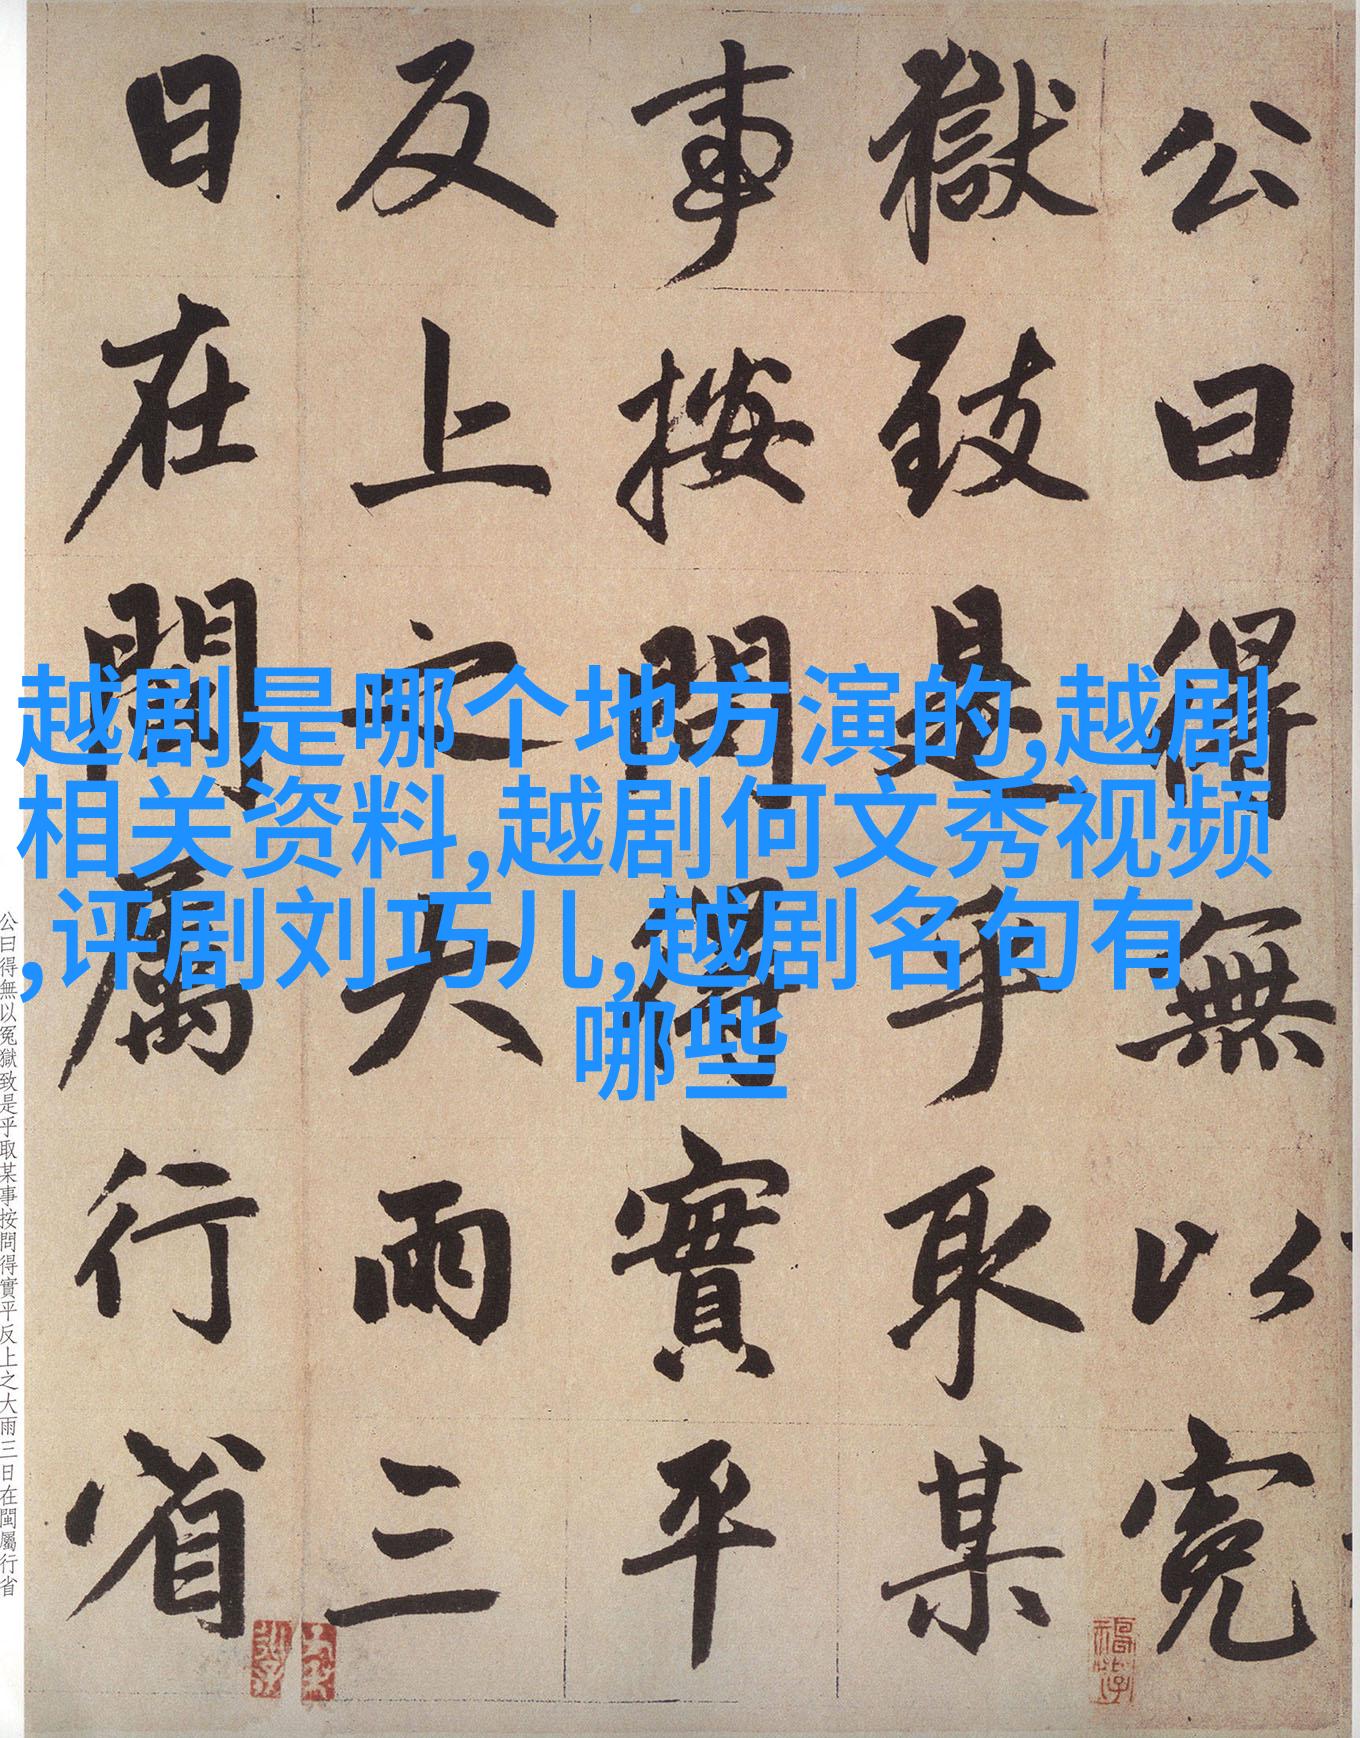 公曰得無以冤
獄致是乎取某
事按問得實平
反上之大雨三
日在閩屬行省
越剧是哪个地方演的,越剧
相关资料,越剧何文秀视频
,评剧刘巧儿,越剧名句有
哪些
公曰得無以冤獄致是乎取某事按問得實平反上之大雨三日在閩屬行省